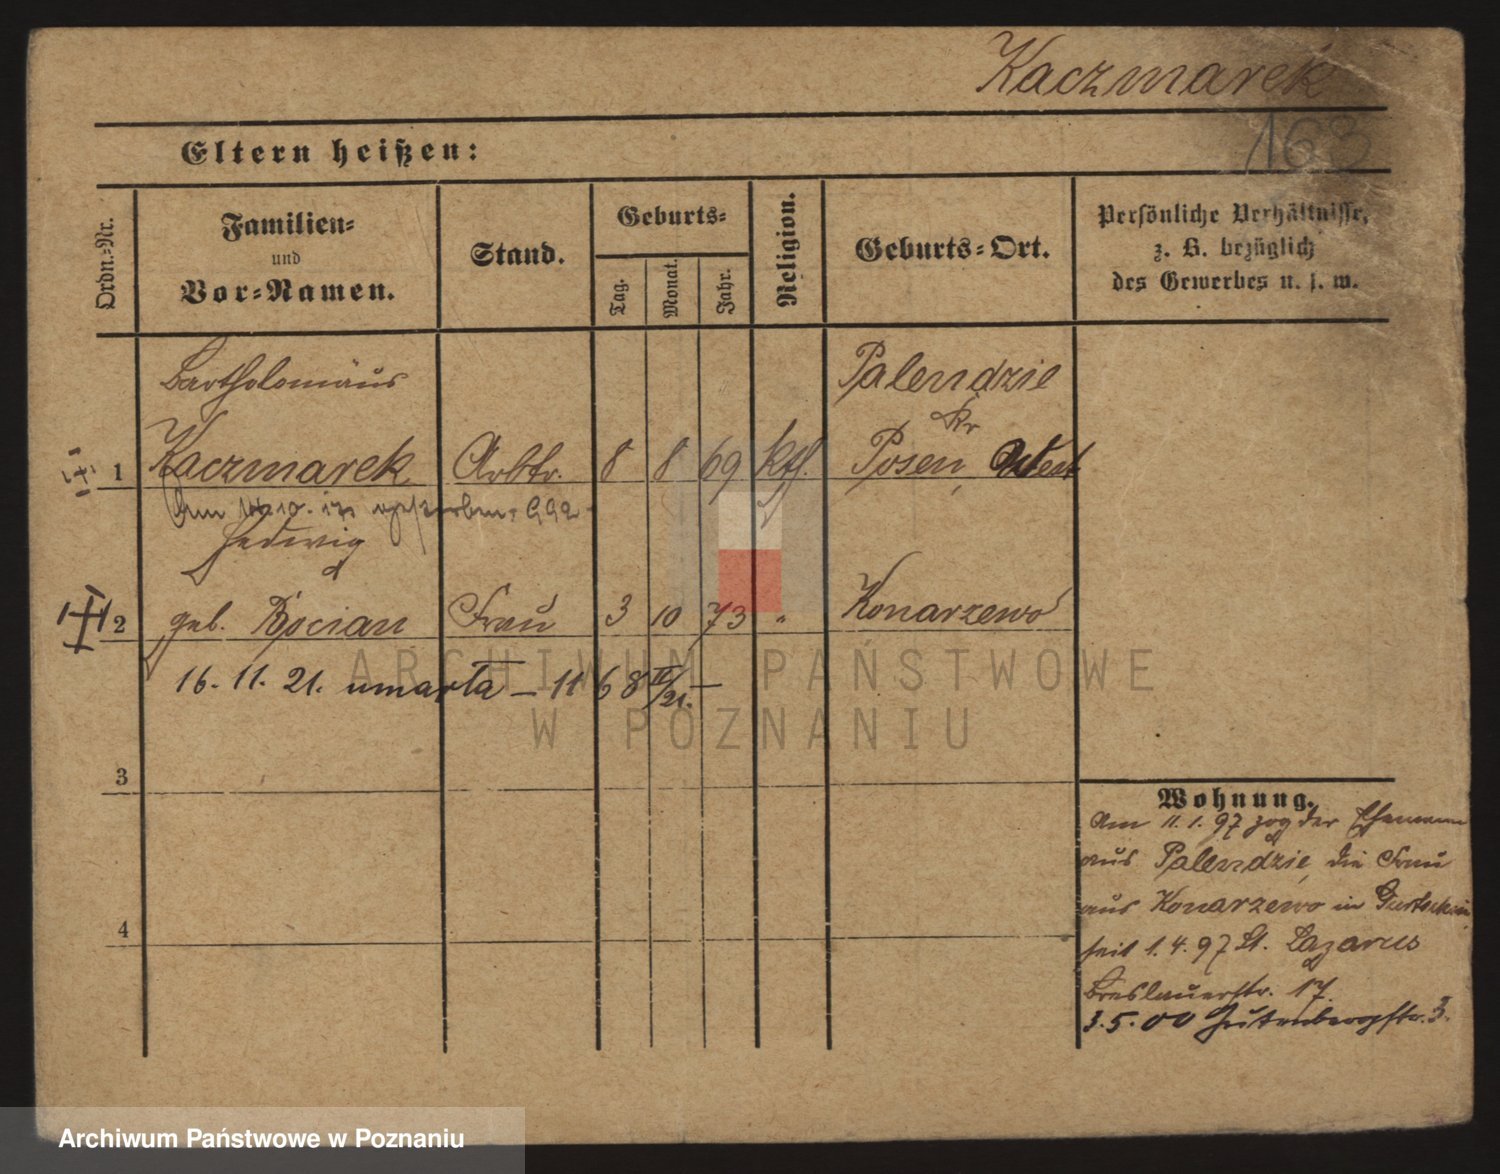 Kaczmarek
163
Eltern heißen:
Ordn.-Nr.
Familien-
und
Vor-Namen.
Stand.
Geburts-
Tag.
Monat.
Jahr.
Religion.
Geburts-Ort.
Persönliche Verhältnisse,
z. B. bezüglich
des Gewerbes u. s. w.
Bartholomäus
Palendzie
Kr
1 Kaczmarek Arbtr. 8 8 69 kth. Posen, West
Am gestorben
Hedwig
2 geb. Bocian Frau 3 10 73 " Konarzewo
16. 11. 21. umarła – 1168 II/21. –
3
4
Wohnung.
Am 11.1.97 zog der Ehemann
aus Palendzie, die Frau
aus Konarzewo in Gurtschin
seit 1.4.97 St. Lazarus
Breslauerstr. 17.
3.5.00 Gutenbergstr. 3.
ARCHIWUM PAŃSTWOWE
W POZNANIU
Archiwum Państwowe w Poznaniu